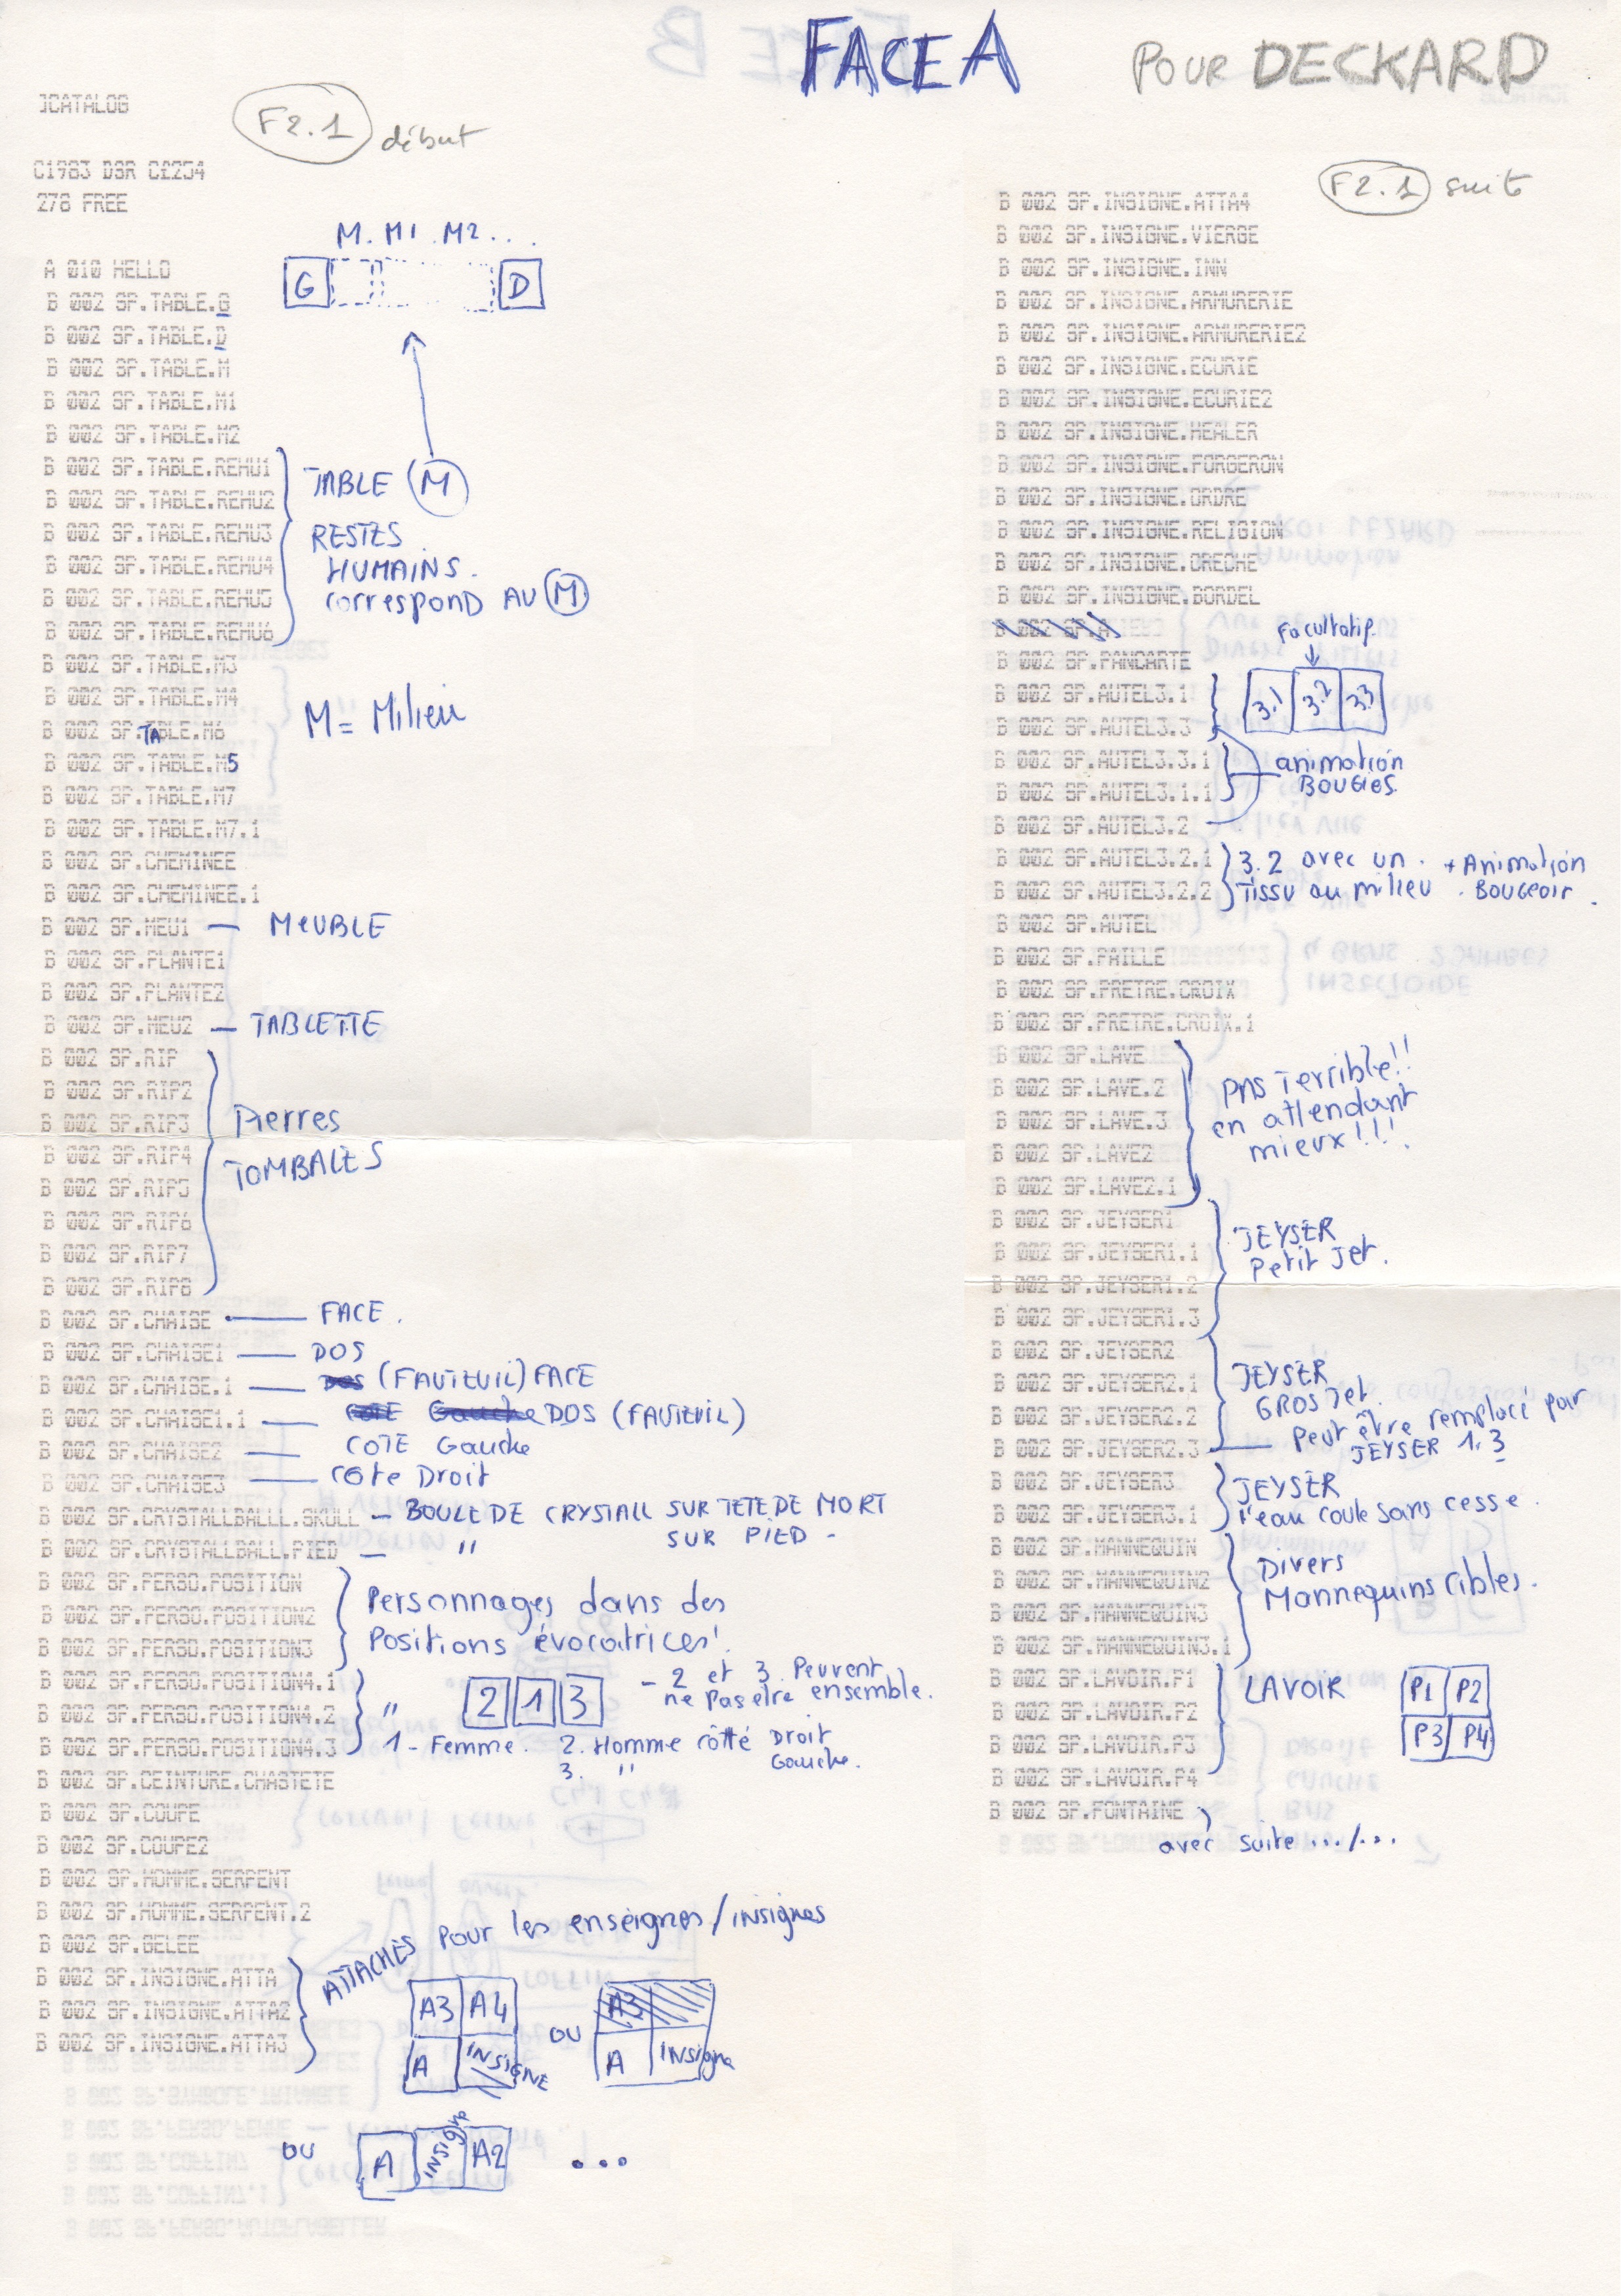 FACE A
POUR DECKARD
]CATALOG
F2.1 début
C1983 DSR CL254
278 FREE
M. M1 .M2 . . .
G D
A 010 HELLO
B 002 SP.TABLE.G
B 002 SP.TABLE.D
B 002 SP.TABLE.M
B 002 SP.TABLE.M1
B 002 SP.TABLE.M2
B 002 SP.TABLE.REHU1
B 002 SP.TABLE.REHU2
B 002 SP.TABLE.REHU3
B 002 SP.TABLE.REHU4
B 002 SP.TABLE.REHU5
B 002 SP.TABLE.REHU6
TABLE M
RESTES
HUMAINS.
correspond AU M
B 002 SP.TABLE.M3
B 002 SP.TABLE.M4
B 002 SP.TABLE.M6
B 002 SP.TABLE.M5
B 002 SP.TABLE.M7
B 002 SP.TABLE.M7.1
M = Milieu
B 002 SP.CHEMINEE
B 002 SP.CHEMINEE.1
B 002 SP.MEU1 — MEUBLE
B 002 SP.PLANTE1
B 002 SP.PLANTE2
B 002 SP.MEU2 — TABLETTE
B 002 SP.RIP
B 002 SP.RIP2
B 002 SP.RIP3
B 002 SP.RIP4
B 002 SP.RIP5
B 002 SP.RIP6
B 002 SP.RIP7
B 002 SP.RIP8
Pierres
TOMBALES
B 002 SP.CHAISE — FACE.
B 002 SP.CHAISE1 — DOS
B 002 SP.CHAISE.1 — DOS (FAUTEUIL) FACE
B 002 SP.CHAISE1.1 — COTE Gauche DOS (FAUTEUIL)
B 002 SP.CHAISE2 — COTE Gauche
B 002 SP.CHAISE3 — COTE Droit
B 002 SP.CRYSTALLBALLL.SKULL — BOULE DE CRYSTALL SUR TETE DE MORT
B 002 SP.CRYSTALLBALL.PIED — " SUR PIED -
B 002 SP.PERSO.POSITION
B 002 SP.PERSO.POSITION2
B 002 SP.PERSO.POSITION3
Personnages dans des
Positions évocatrices!
B 002 SP.PERSO.POSITION4.1
B 002 SP.PERSO.POSITION4.2
B 002 SP.PERSO.POSITION4.3
" 2 1 3
- 2 et 3 Peuvent
ne pas etre ensemble.
1 - Femme. 2. Homme côtté Droit
3. " Gauche.
B 002 SP.CEINTURE.CHASTETE
B 002 SP.COUPE
B 002 SP.COUPE2
B 002 SP.HOMME.SERPENT
B 002 SP.HOMME.SERPENT.2
B 002 SP.GELEE
B 002 SP.INSIGNE.ATTA
B 002 SP.INSIGNE.ATTA2
B 002 SP.INSIGNE.ATTA3
ATTACHES pour les enseignes/insignes
A3 A4
A INSIGNE
OU
A3
A INSigne
OU
A INSIGNE A2
...
F2.1 suite
B 002 SP.INSIGNE.ATTA4
B 002 SP.INSIGNE.VIERGE
B 002 SP.INSIGNE.INN
B 002 SP.INSIGNE.ARMURERIE
B 002 SP.INSIGNE.ARMURERIE2
B 002 SP.INSIGNE.ECURIE
B 002 SP.INSIGNE.ECURIE2
B 002 SP.INSIGNE.HEALER
B 002 SP.INSIGNE.FORGERON
B 002 SP.INSIGNE.ORDRE
B 002 SP.INSIGNE.RELIGION
B 002 SP.INSIGNE.CRECHE
B 002 SP.INSIGNE.BORDEL
B 002 SP.A
B 002 SP.PANCARTE
B 002 SP.AUTEL3.1
B 002 SP.AUTEL3.3
Facultatif.
3.1 3.2 3.3
B 002 SP.AUTEL3.3.1
B 002 SP.AUTEL3.1.1
B 002 SP.AUTEL3.2
animation
BOUGIES.
B 002 SP.AUTEL3.2.1
B 002 SP.AUTEL3.2.2
3.2 avec un. + Animation
Tissu au milieu . Bougeoir.
B 002 SP.AUTEL
B 002 SP.PAILLE
B 002 SP.PRETRE.CROIX
B 002 SP.PRETRE.CROIX.1
B 002 SP.LAVE
B 002 SP.LAVE.2
B 002 SP.LAVE.3
B 002 SP.LAVE2
B 002 SP.LAVE2.1
PAS Terrible!!
en attendant
mieux!!!
B 002 SP.JEYSER1
B 002 SP.JEYSER1.1
B 002 SP.JEYSER1.2
B 002 SP.JEYSER1.3
JEYSER
Petit Jet.
B 002 SP.JEYSER2
B 002 SP.JEYSER2.1
B 002 SP.JEYSER2.2
B 002 SP.JEYSER2.3
JEYSER
GROS Jet.
Peut être remplacé par
JEYSER 1.3
B 002 SP.JEYSER3
B 002 SP.JEYSER3.1
JEYSER
l'eau coule sans cesse.
B 002 SP.MANNEQUIN
B 002 SP.MANNEQUIN2
B 002 SP.MANNEQUIN3
B 002 SP.MANNEQUIN3.1
Divers
Mannequins cibles.
B 002 SP.LAVOIR.P1
B 002 SP.LAVOIR.P2
B 002 SP.LAVOIR.P3
B 002 SP.LAVOIR.P4
LAVOIR
P1 P2
P3 P4
B 002 SP.FONTAINE
avec suite .../...